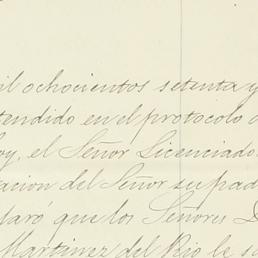 il ochocientos setenta y
tendido en el protocolo d
oy, el Señor Licenciado
acion del Señor su pad
laró que los Señores D
Martinez del Rio le s